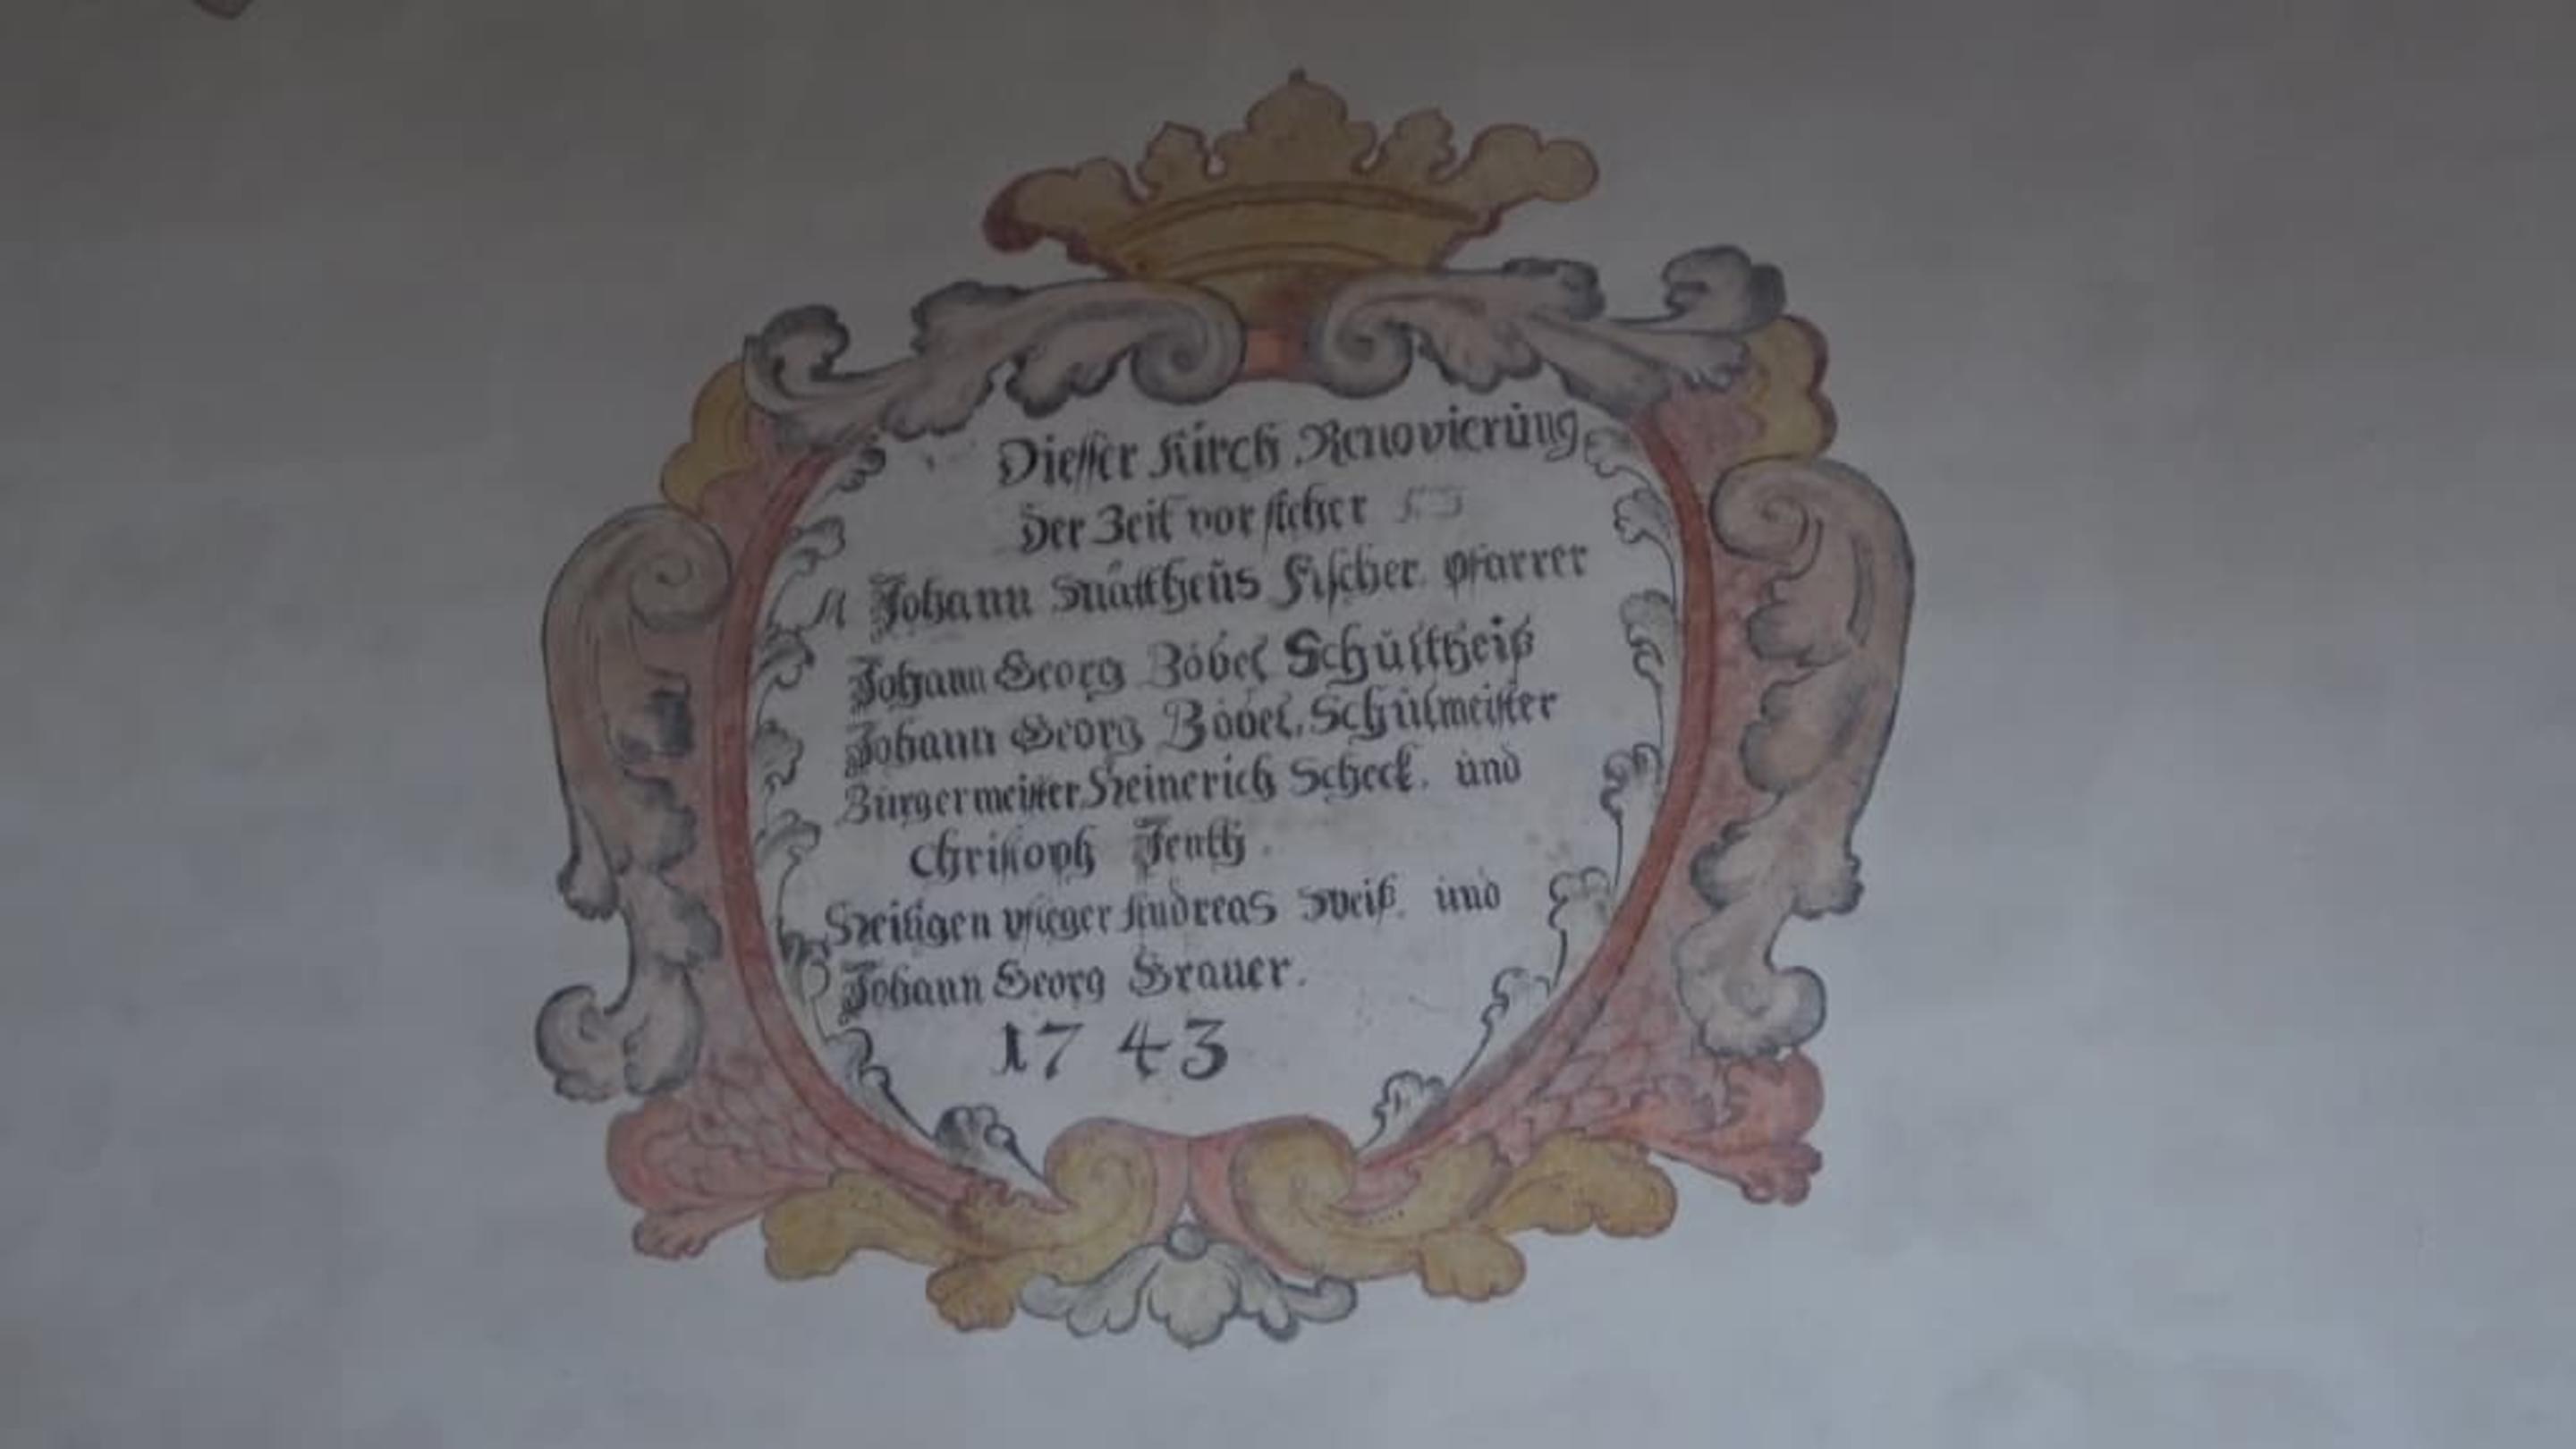 Diesser Kirch Renovierung
Der Zeit vorsteher
M Johann Mattheus Fischer. Pfarrer
Johann Georg Böbel Schultheiß
Johann Georg Böbel. Schulmeister
Burgermeister Heinerich Scheck. und
Christoph
Heiligen Pfleger Andreas Weiß. und
Johann Georg Grauer.
1743